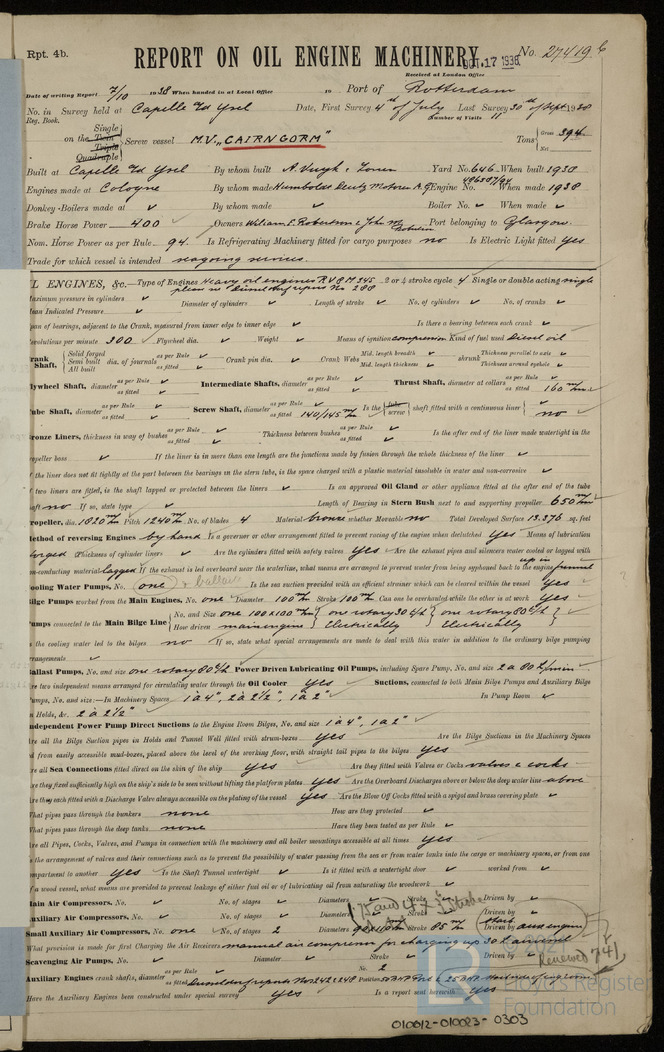 Rpt. 4b.
REPORT ON OIL ENGINE MACHINERY.
No. 27419
OCT 17 1938
Received at London Office
Date of writing Report 7/10 1938 When handed in at Local Office 10 Port of Rotterdam
No. in Survey held at Capelle a/d Ysel Date, First Survey 4th of July Last Survey 30th of Sept 1938
Reg. Book. Number of Visits 11
on the Single Twin Triple Quadruple Screw vessel M.V. "CAIRNGORM" Tons Gross 394 Net
Built at Capelle a/d Ysel By whom built A. Vuyk & Zonen Yard No. 646 When built 1938
Engines made at Cologne By whom made Humboldt Deutz Motoren A.G. Engine No. When made 1938
Donkey Boilers made at ✓ By whom made ✓ Boiler No. ✓ When made ✓
Brake Horse Power 400 Owners William F. Robertson & John M. Port belonging to Glasgow
Nom. Horse Power as per Rule 94 Is Refrigerating Machinery fitted for cargo purposes no Is Electric Light fitted yes
Trade for which vessel is intended seagoing services.
L ENGINES, &c.—Type of Engines Heavy oil engines RV8M345 2 or 4 stroke cycle 4 Single or double acting single
Maximum pressure in cylinders ✓ Diameter of cylinders ✓ Length of stroke ✓ No. of cylinders ✓ No. of cranks ✓
Mean Indicated Pressure ✓
Span of bearings, adjacent to the Crank, measured from inner edge to inner edge ✓ Is there a bearing between each crank ✓
Revolutions per minute 300 Flywheel dia. ✓ Weight ✓ Means of ignition compression Kind of fuel used Diesel oil
Crank Shaft, Solid forged Semi built All built dia. of journals as per Rule ✓ as fitted ✓ Crank pin dia. ✓ Crank Webs Mid. length breadth ✓ Mid. length thickness ✓ shrunk Thickness parallel to axis ✓ Thickness around eyehole ✓
Flywheel Shaft, diameter as per Rule ✓ as fitted ✓ Intermediate Shafts, diameter as per Rule ✓ as fitted ✓ Thrust Shaft, diameter at collars as per Rule ✓ as fitted 160 m/m
Tube Shaft, diameter as per Rule ✓ as fitted ✓ Screw Shaft, diameter as per Rule ✓ as fitted 140/145 m/m Is the tube screw shaft fitted with a continuous liner no
Bronze Liners, thickness in way of bushes as per Rule ✓ as fitted ✓ Thickness between bushes as per Rule ✓ as fitted ✓ Is the after end of the liner made watertight in the
propeller boss ✓ If the liner is in more than one length are the junctions made by fusion through the whole thickness of the liner ✓
If the liner does not fit tightly at the part between the bearings in the stern tube, is the space charged with a plastic material insoluble in water and non-corrosive ✓
If two liners are fitted, is the shaft lapped or protected between the liners ✓ Is an approved Oil Gland or other appliance fitted at the after end of the tube
shaft no If so, state type ✓ Length of Bearing in Stern Bush next to and supporting propeller 650 m/m
Propeller, dia. 1820 m/m Pitch 1240 m/m No. of blades 4 Material bronze whether Moveable no Total Developed Surface 13.376 sq. feet
Method of reversing Engines by hand Is a governor or other arrangement fitted to prevent racing of the engine when declutched yes Means of lubrication
forged Thickness of cylinder liners ✓ Are the cylinders fitted with safety valves yes Are the exhaust pipes and silencers water cooled or lagged with
non-conducting material lagged If the exhaust is led overboard near the waterline, what means are arranged to prevent water from being syphoned back to the engine up in funnel
Cooling Water Pumps, No. one & ballast Is the sea suction provided with an efficient strainer which can be cleared within the vessel yes
Bilge Pumps worked from the Main Engines, No. one Diameter 100 m/m Stroke 100 m/m Can one be overhauled while the other is at work yes
Pumps connected to the Main Bilge Line No. and Size one 100x100 m/m one rotary 30 t/h one rotary 80 t/h
How driven main engine Electrically Electrically
Is the cooling water led to the bilges no If so, state what special arrangements are made to deal with this water in addition to the ordinary bilge pumping
arrangements ✓
Ballast Pumps, No. and size one rotary 80 t/h Power Driven Lubricating Oil Pumps, including Spare Pump, No. and size 2 a 80 l/min
Are two independent means arranged for circulating water through the Oil Cooler yes Suctions, connected to both Main Bilge Pumps and Auxiliary Bilge
Pumps, No. and size:—In Machinery Spaces 1 à 4", 2 à 2½", 1 à 2" In Pump Room ✓
In Holds, &c. 2 à 2½"
Independent Power Pump Direct Suctions to the Engine Room Bilges, No. and size 1 à 4", 1 à 2"
Are all the Bilge Suction pipes in Holds and Tunnel Well fitted with strums-boxes yes Are the Bilge Suctions in the Machinery Spaces
led from easily accessible mud-boxes, placed above the level of the working floor, with straight tail pipes to the bilges yes
Are all Sea Connections fitted direct on the skin of the ship yes Are they fitted with Valves or Cocks valves & cocks
Are they fixed sufficiently high on the ship's side to be seen without lifting the platform plates yes Are the Overboard Discharges above or below the deep water line above
Are they each fitted with a Discharge Valve always accessible on the plating of the vessel yes Are the Blow Off Cocks fitted with a spigot and brass covering plate ✓
What pipes pass through the bunkers none How are they protected ✓
What pipes pass through the deep tanks none Have they been tested as per Rule ✓
Are all Pipes, Cocks, Valves, and Pumps in connection with the machinery and all boiler mountings accessible at all times yes
Is the arrangement of valves and their connections such as to prevent the possibility of water passing from the sea or from water tanks into the cargo or machinery spaces, or from one
compartment to another yes Is the Shaft Tunnel watertight ✓ Is it fitted with a watertight door ✓ worked from ✓
If a wood vessel, what means are provided to prevent leakages of either fuel oil or of lubricating oil from saturating the woodwork ✓
Main Air Compressors, No. ✓ No. of stages ✓ Diameters ✓ Stroke ✓ Driven by ✓
Auxiliary Air Compressors, No. ✓ No. of stages ✓ Diameters ✓ Stroke ✓ Driven by ✓
Small Auxiliary Air Compressors, No. one No. of stages 2 Diameters 90x110 m/m Stroke 85 m/m Driven by aux engine
What provision is made for first Charging the Air Receivers manual air compressor for charging up 30 l air vessel
Scavenging Air Pumps, No. ✓ Diameter ✓ Stroke ✓ Driven by ✓
Auxiliary Engines crank shafts, diameter as per Rule as fitted Dusseldorf reports Nos 242 & 248 No. 2 Position
Have the Auxiliary Engines been constructed under special survey yes Is a report sent herewith yes
Renewed 741
© 2021
LR
Lloyd's Register
Foundation
010012-010023-0303